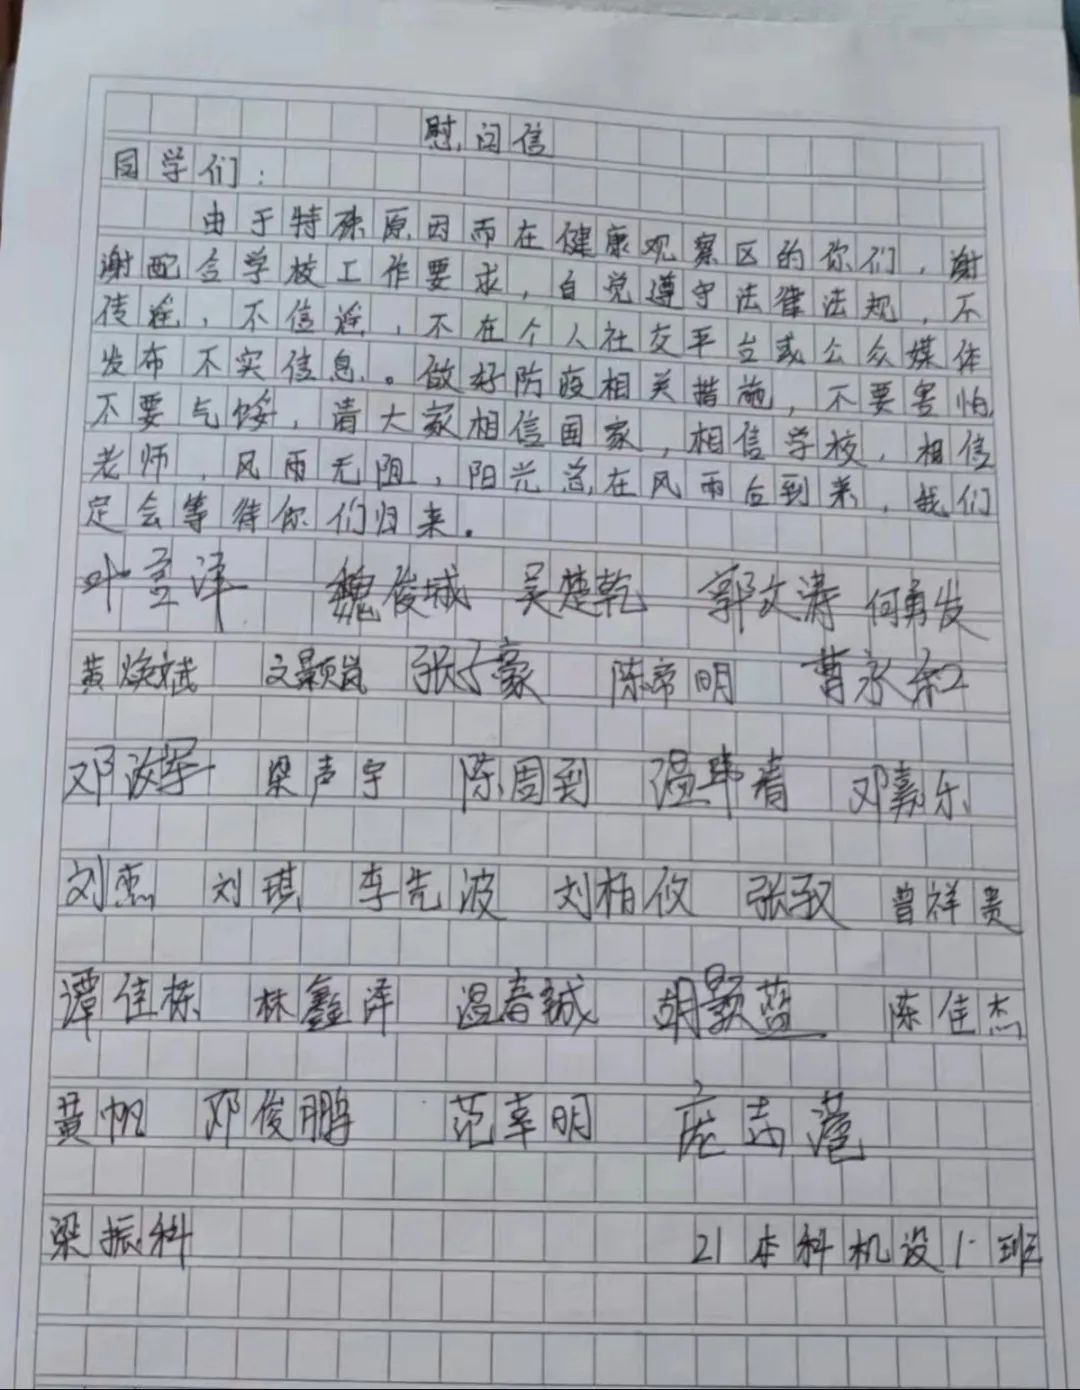 慰问信
同学们：
由于特殊原因而在健康观察区的你们，谢
谢配合学校工作要求，自觉遵守法律法规，不
传谣，不信谣，不在个人社交平台或公众媒体
发布不实信息。做好防疫相关措施，不要害怕
不要气馁，请大家相信国家，相信学校，相信
老师，风雨无阻，阳光总在风雨后到来，我们
定会等待你们归来。
魏俊城 吴楚乾 郭文涛 何勇发
黄焕斌 文颢岚 张子豪 陈帝明 曹永和
梁声宇 陈周到 邓嘉乐
刘杰 刘琪 李先波 刘柏攸 张驭 曾祥贵
谭佳栋 林鑫泽 温春誠 胡颢蓝 陈佳杰
黄帆 邓俊鹏 范幸明
梁振科 21本科机设1班